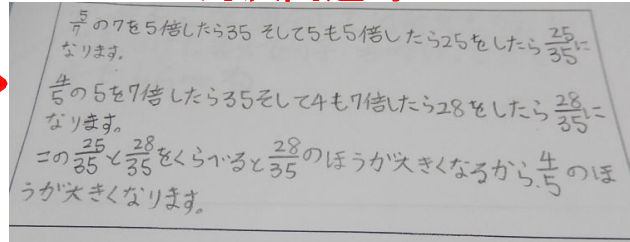 5/7の7を5倍したら35 そして5も5倍したら25をしたら25/35に
なります。
4/5の5を7倍したら35そして4も7倍したら28をしたら28/35に
なります。
この25/35と28/35をくらべると28/35のほうが大きくなるから、4/5のほ
うが大きくなります。